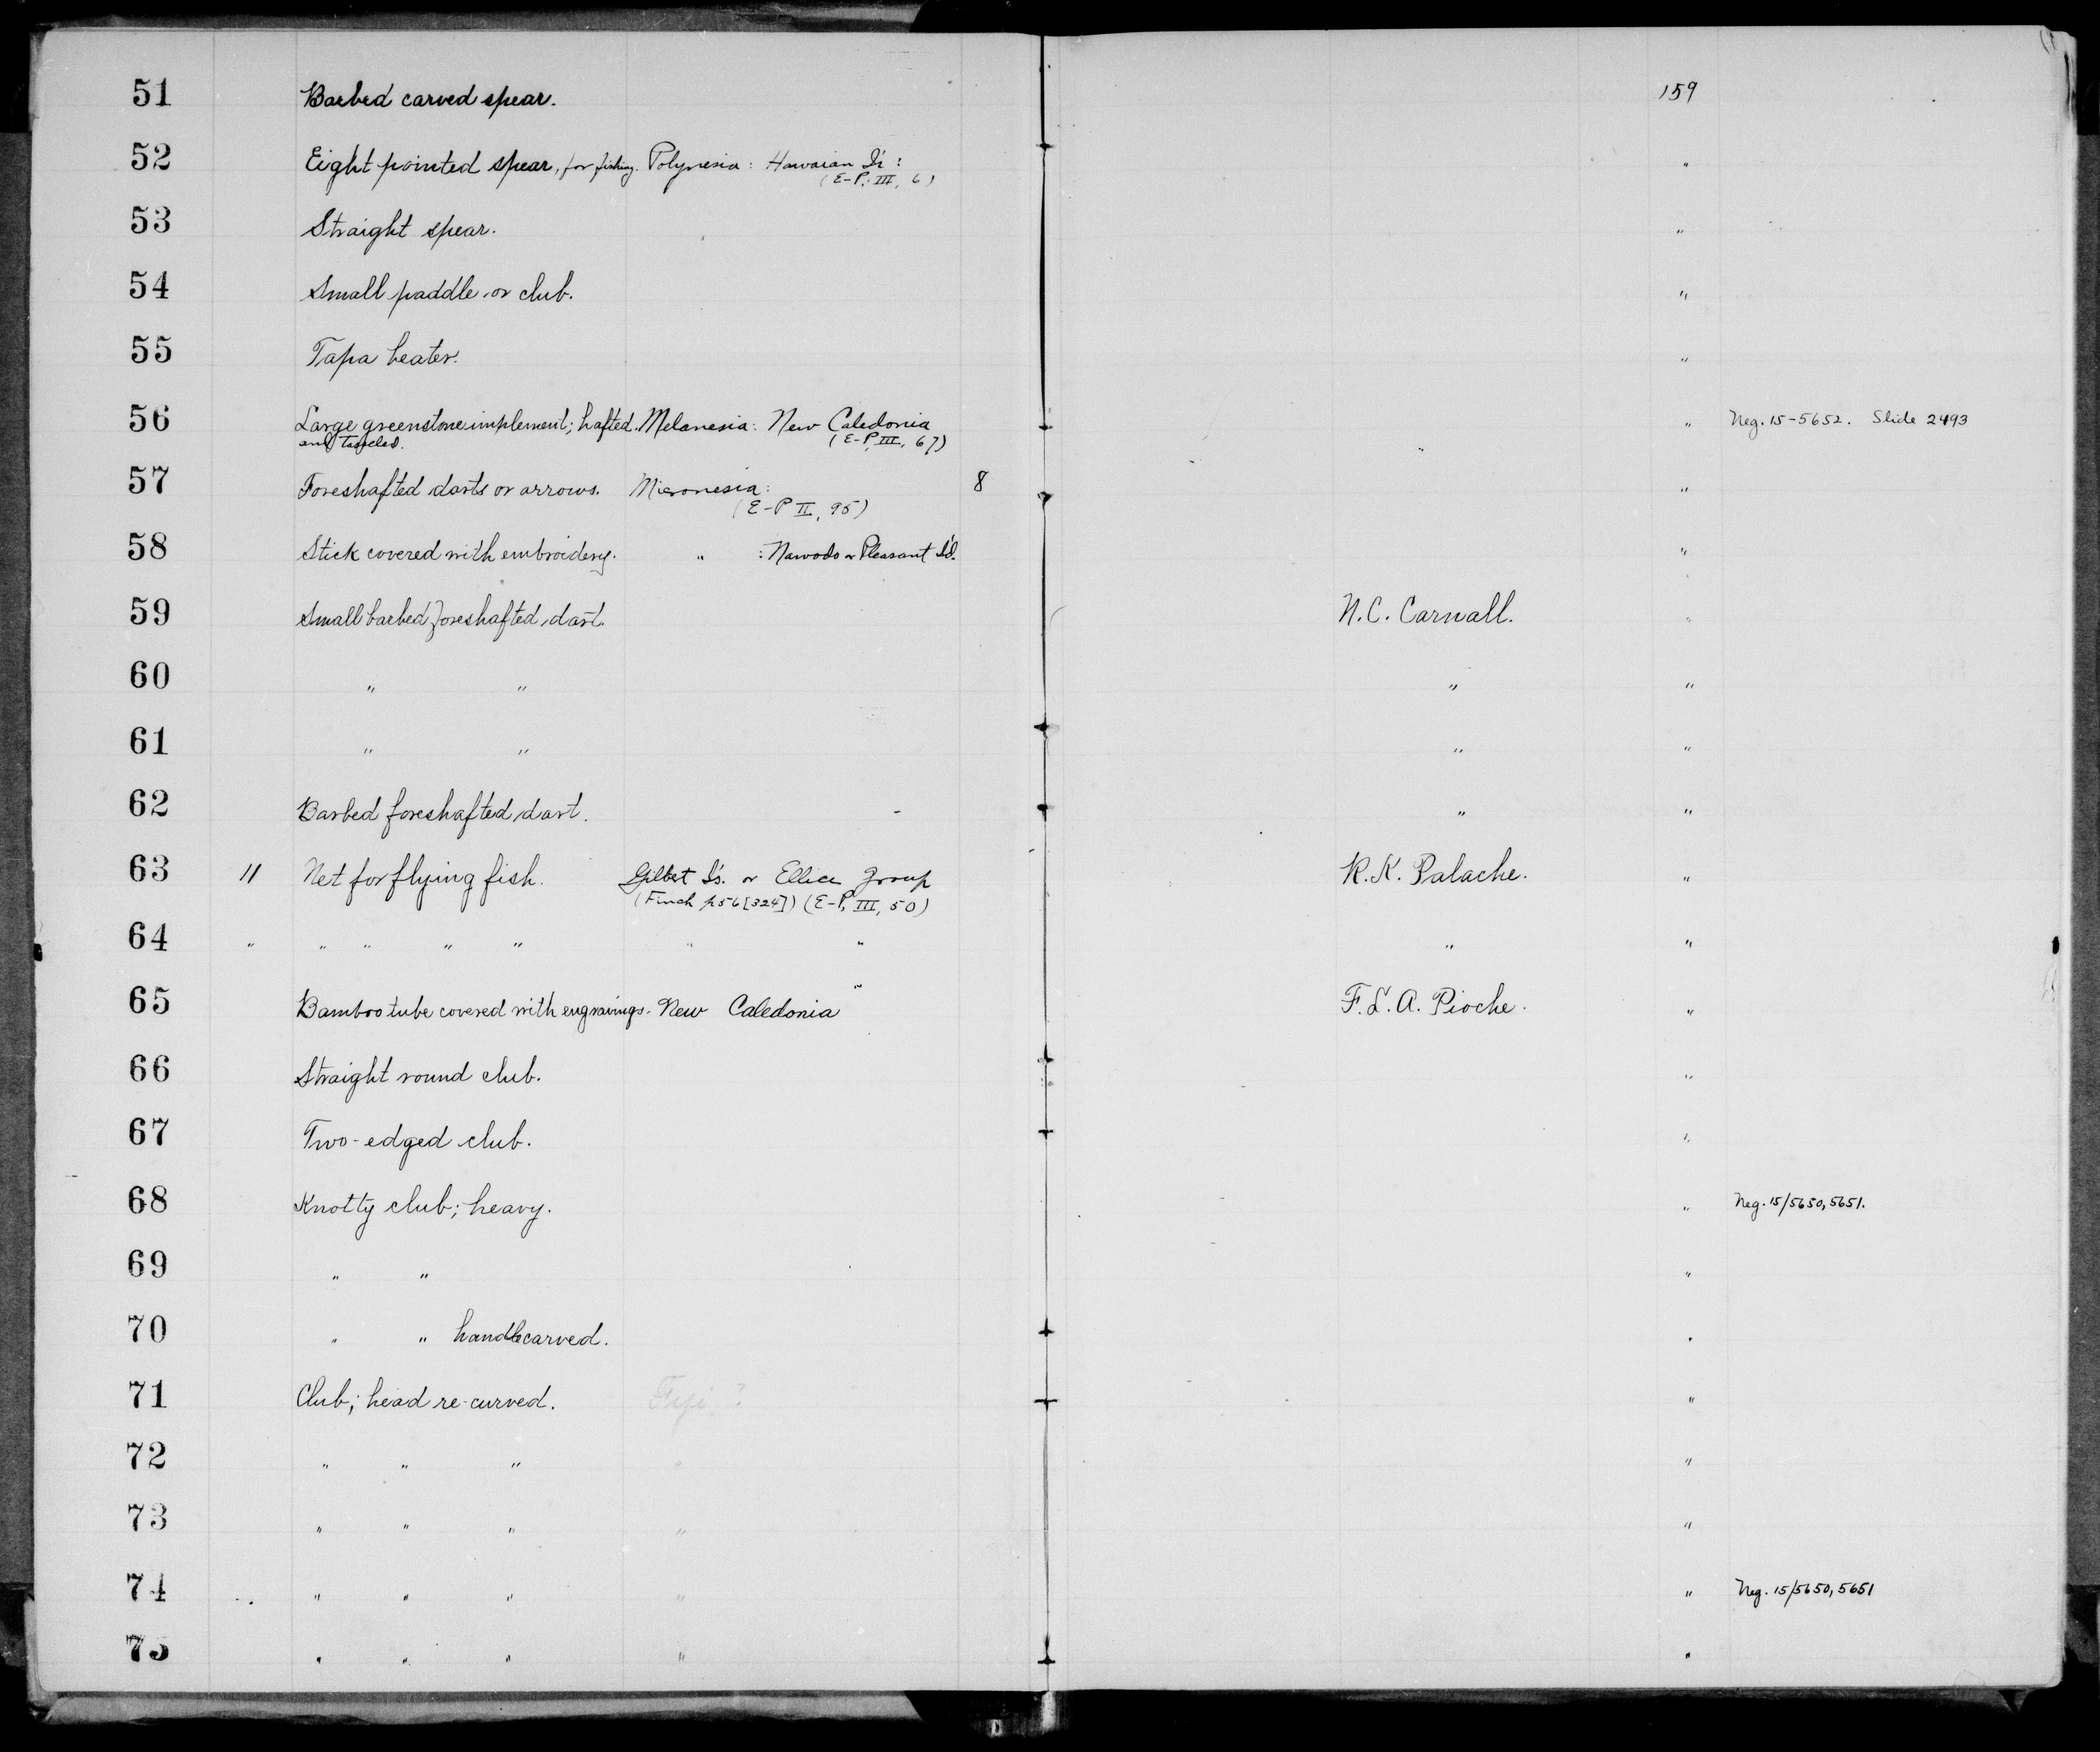 51 Barbed carved spear. 159
52 Eight pointed spear, for fishing. Polynesia: Hawaian Is: "
(E-P, III, 6)
53 Straight spear. "
54 Small paddle or club. "
55 Tapa beater. "
56 Large greenstone implement; hafted. Melanesia: New Caledonia " Neg. 15-5652. Slide 2493
and tassled. (E-P, III, 67)
57 Foreshafted darts or arrows. Micronesia: 8 "
(E-P II, 95)
58 Stick covered with embroidery. " : Nawodo or Pleasant Id. "
59 Small barbed foreshafted dart. N.C. Carnall. "
60 " " " "
61 " " " "
62 Barbed foreshafted dart. " "
63 11 Net for flying fish. Gilbert Is. or Ellice Group R.K. Palache. "
(Finch p56[324]) (E-P, III, 50)
64 " " " " " " " " "
65 Bamboo tube covered with engravings. New Caledonia " F.L.A. Pioche. "
66 Straight round club. "
67 Two-edged club. "
68 Knotty club; heavy. " Neg. 15/5650, 5651.
69 " " "
70 " " handle carved. "
71 Club; head re-curved. Fiji ? "
72 " " " " "
73 " " " " "
74 " " " " " Neg. 15/5650, 5651
75 " " " " "